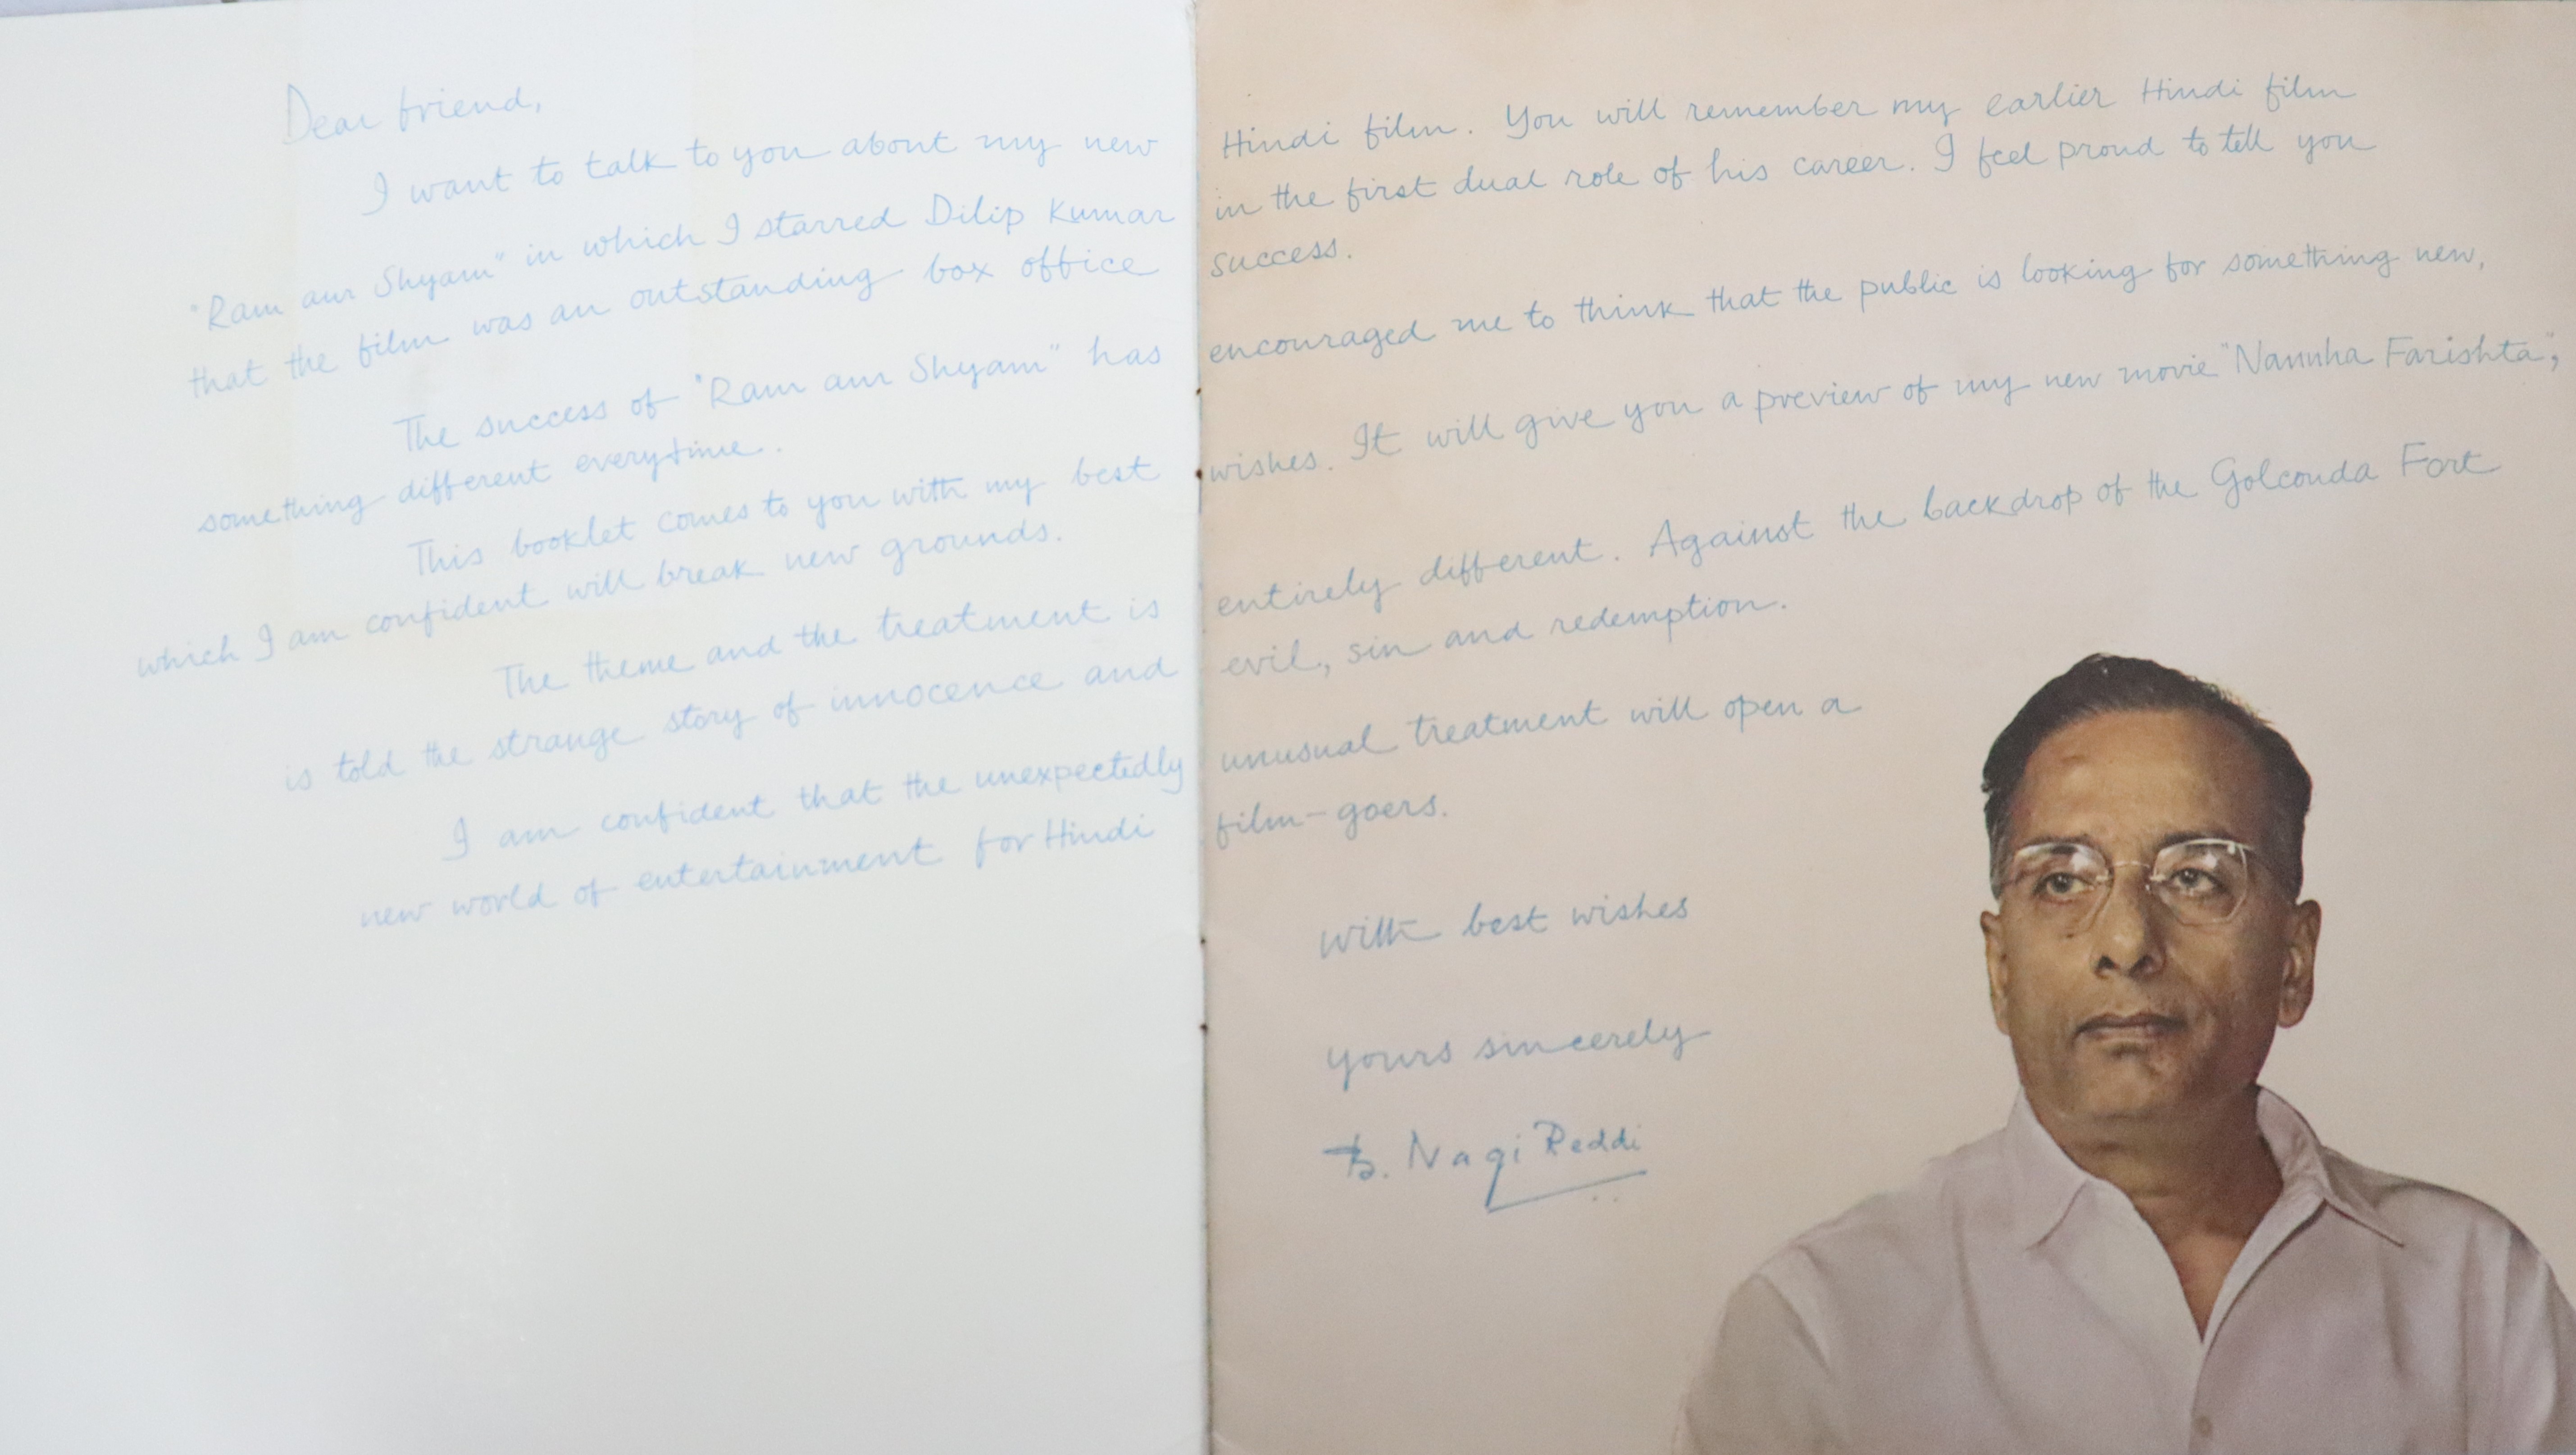 Dear friend,
I want to talk to you about my new Hindi film. You will remember my earlier Hindi film
"Ram aur Shyam" in which I starred Dilip Kumar in the first dual role of his career. I feel proud to tell you
that the film was an outstanding box office success.
The success of "Ram aur Shyam" has encouraged me to think that the public is looking for something new,
something different everytime.
This booklet comes to you with my best wishes. It will give you a preview of my new movie "Nannha Farishta",
which I am confident will break new grounds.
The theme and the treatment is entirely different. Against the backdrop of the Golconda Fort
is told the strange story of innocence and evil, sin and redemption.
I am confident that the unexpectedly unusual treatment will open a
new world of entertainment for Hindi film-goers.
with best wishes
yours sincerely
B. Nagi Reddi